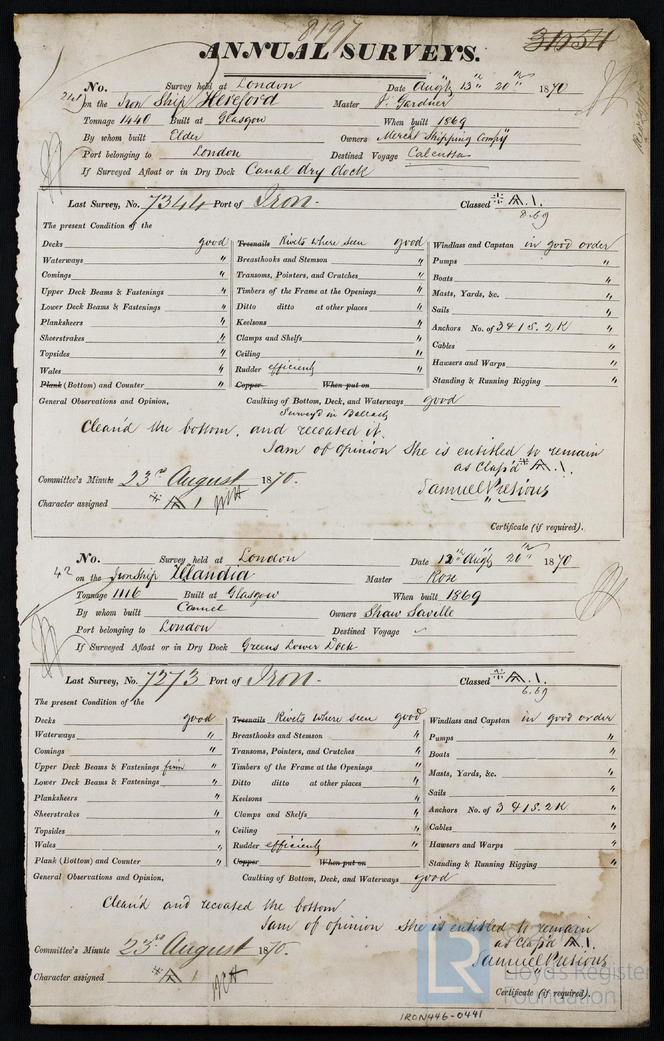 8197
31054
ANNUAL SURVEYS.
No. Survey held at London Date Augt 13th 20th 1870
on the Iron Ship Hereford Master J. Gardner
Tonnage 1440 Built at Glasgow When built 1869
By whom built Elder Owners Mercht Shipping Compy
Port belonging to London Destined Voyage Calcutta
If Surveyed Afloat or in Dry Dock Canal dry dock
Last Survey, No. 7344 Port of Iron. Classed A.1.
8.69
The present Condition of the
Decks good Treenails Rivets where seen good Windlass and Capstan in good order
Waterways " Breasthooks and Stemson " Pumps "
Comings " Transoms, Pointers, and Crutches " Boats "
Upper Deck Beams & Fastenings " Timbers of the Frame at the Openings " Masts, Yards, &c. "
Lower Deck Beams & Fastenings " Ditto ditto at other places " Sails "
Planksheers " Keelsons " Anchors No. of 3 & 1 S. 2 K "
Sheerstrakes " Clamps and Shelfs " Cables "
Topsides " Ceiling " Hawsers and Warps "
Wales " Rudder efficient " Standing & Running Rigging "
Plank (Bottom) and Counter " Copper When put on
General Observations and Opinion, Caulking of Bottom, Deck, and Waterways good
Survey'd in Ballast
Clean'd the bottom, and recoated it.
I am of opinion She is entitled to remain
as Class'd A.1.
Committee's Minute 23rd August 1870. Samuel Pretious
Character assigned A 1
Certificate (if required).
No. Survey held at London Date 12th Augt 20th 1870
on the Iron Ship Zelandia Master Rose
Tonnage 1116 Built at Glasgow When built 1869
By whom built Connel Owners Shaw Saville
Port belonging to London Destined Voyage
If Surveyed Afloat or in Dry Dock Greens Lower Dock
Last Survey, No. 7273 Port of Iron. Classed A.1.
6.69
The present Condition of the
Decks good Treenails Rivets where seen good Windlass and Capstan in good order
Waterways " Breasthooks and Stemson " Pumps "
Comings " Transoms, Pointers, and Crutches " Boats "
Upper Deck Beams & Fastenings firm " Timbers of the Frame at the Openings " Masts, Yards, &c. "
Lower Deck Beams & Fastenings " Ditto ditto at other places " Sails "
Planksheers " Keelsons " Anchors No. of 3 & 1 S. 2 K "
Sheerstrakes " Clamps and Shelfs " Cables "
Topsides " Ceiling " Hawsers and Warps "
Wales " Rudder efficient " Standing & Running Rigging "
Plank (Bottom) and Counter " Copper When put on
General Observations and Opinion, Caulking of Bottom, Deck, and Waterways good
Clean'd and recoated the bottom
I am of opinion She is entitled to remain
as Class'd A.1.
Committee's Minute 23rd August 1870. Samuel Pretious
Character assigned A 1
Certificate (if required).
LR Lloyd's Register Foundation
IRON446-0441